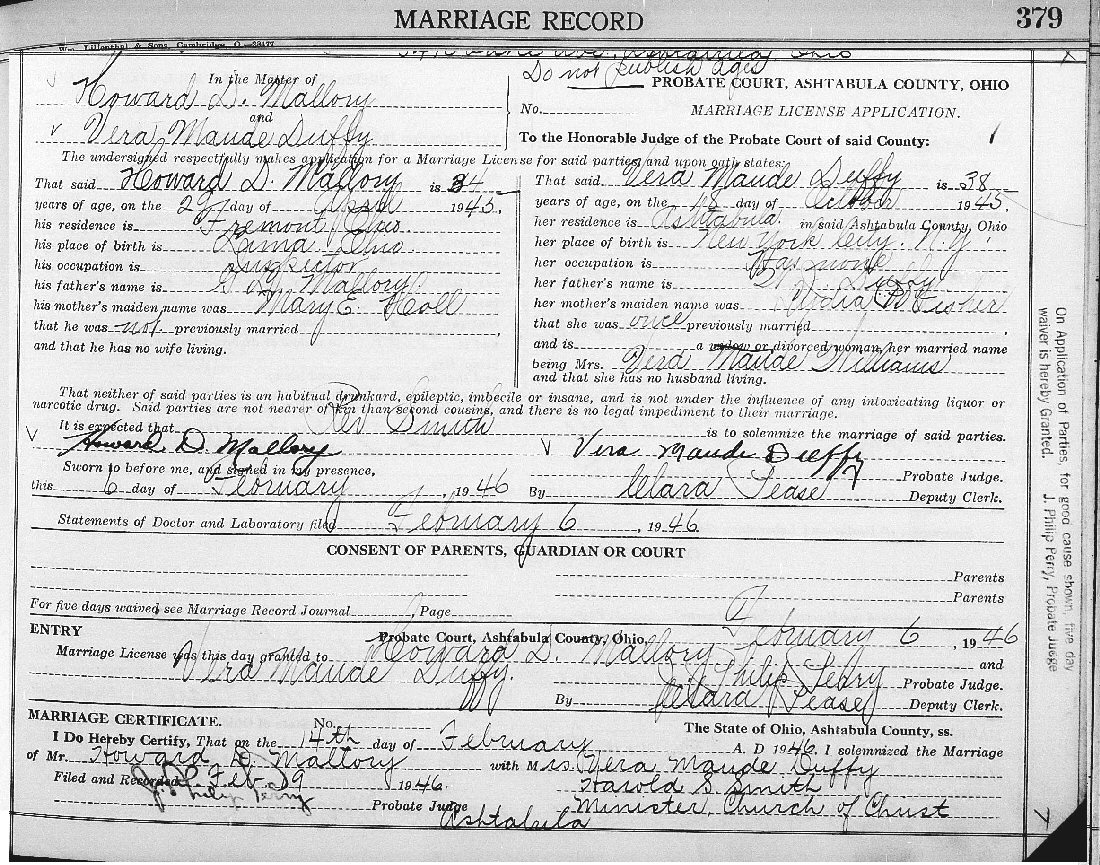 MARRIAGE RECORD 379
Wm. Lilienthal & Sons, Cambridge, O.—23177
Ohio
Do not publish ages
In the Matter of
Howard D. Mallory
and
Vera Maude Duffy
PROBATE COURT, ASHTABULA COUNTY, OHIO
No. MARRIAGE LICENSE APPLICATION.
To the Honorable Judge of the Probate Court of said County:
The undersigned respectfully makes application for a Marriage License for said parties, and upon oath states:
That said Howard D. Mallory is 34
years of age, on the 29 day of April 1945,
his residence is Fremont, Ohio
his place of birth is Ohio
his occupation is Inspector
his father's name is Mallory
his mother's maiden name was Mary E. Holl
that he was not previously married
and that he has no wife living.
That said Vera Maude Duffy is 38
years of age, on the 18 day of October 1945,
her residence is Ashtabula in said Ashtabula County, Ohio
her place of birth is New York City, N.Y.
her occupation is
her father's name is Duffy
her mother's maiden name was Lydia Fisher
that she was once previously married
and is a widow or divorced woman, her married name
being Mrs. Vera Maude Williams
and that she has no husband living.
That neither of said parties is an habitual drunkard, epileptic, imbecile or insane, and is not under the influence of any intoxicating liquor or
narcotic drug. Said parties are not nearer of kin than second cousins, and there is no legal impediment to their marriage.
It is expected that Rev Smith is to solemnize the marriage of said parties.
Howard D. Mallory Vera Maude Duffy
Sworn to before me, and signed in my presence, Probate Judge.
this 6 day of February, 1946 By Clara Pease Deputy Clerk.
Statements of Doctor and Laboratory filed February 6, 1946.
CONSENT OF PARENTS, GUARDIAN OR COURT
Parents
Parents
For five days waived see Marriage Record Journal Page
ENTRY Probate Court, Ashtabula County, Ohio, February 6, 1946
Marriage License was this day granted to Howard D. Mallory and
Vera Maude Duffy. J. Philip Perry Probate Judge.
By Clara Pease Deputy Clerk.
MARRIAGE CERTIFICATE. No. The State of Ohio, Ashtabula County, ss.
I Do Hereby Certify, That on the 14th day of February A. D 1946. I solemnized the Marriage
of Mr. Howard D. Mallory with Mrs. Vera Maude Duffy
Filed and Recorded Feb. 19 1946 Harold S. Smith
J. Philip Perry Probate Judge Minister, Church of Christ
Ashtabula
On Application of Parties, for good cause shown, five day
waiver is hereby Granted. J. Philip Perry, Probate Judge